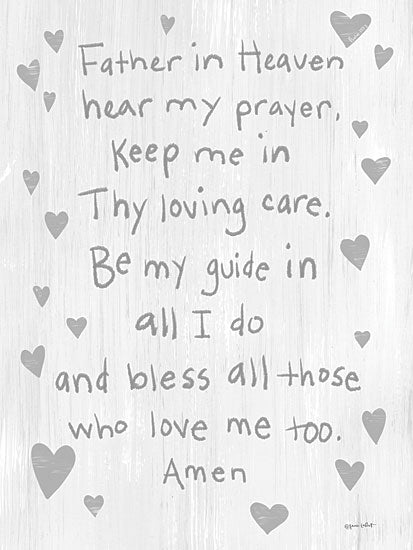 Father in Heaven
hear my prayer,
Keep me in
Thy loving care.
Be my guide in
all I do
and bless all those
who love me too.
Amen